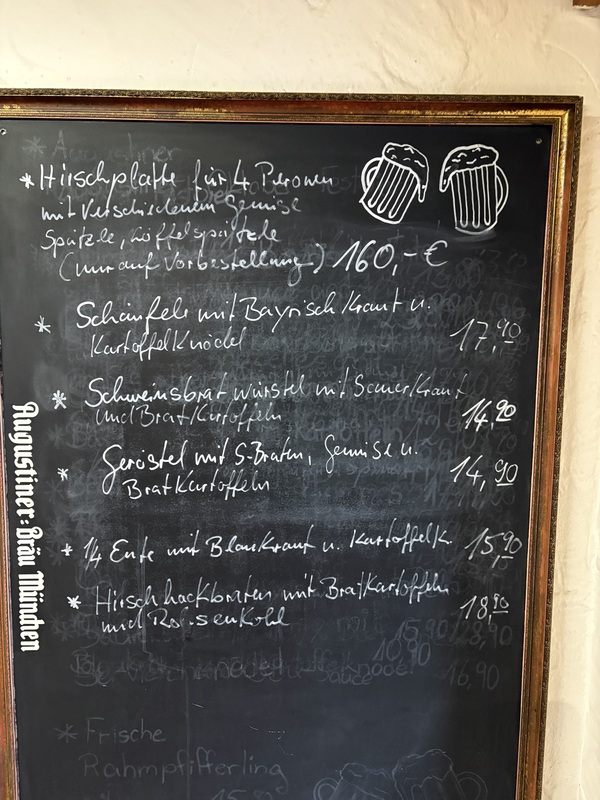 * Hirschplatte für 4 Personen
mit Verschiedenem Gemüse
Spätzle, Löffelspätzle
(nur auf Vorbestellung) 160,- €
* Schäufele mit Bayrisch Kraut u.
Kartoffelknödel 17,90
* Schweinsbratwürstel mit Sauerkraut
und Bratkartoffeln 14,90
* Geröstel mit S-Braten, Gemüse u.
Bratkartoffeln 14,90
* 1/4 Ente mit Blaukraut u. Kartoffelk. 15,90
* Hirschhackbraten mit Bratkartoffeln
und Rosenkohl 18,90
16,90
* Frische
Rahmpfifferling
Augustiner-Bräu München